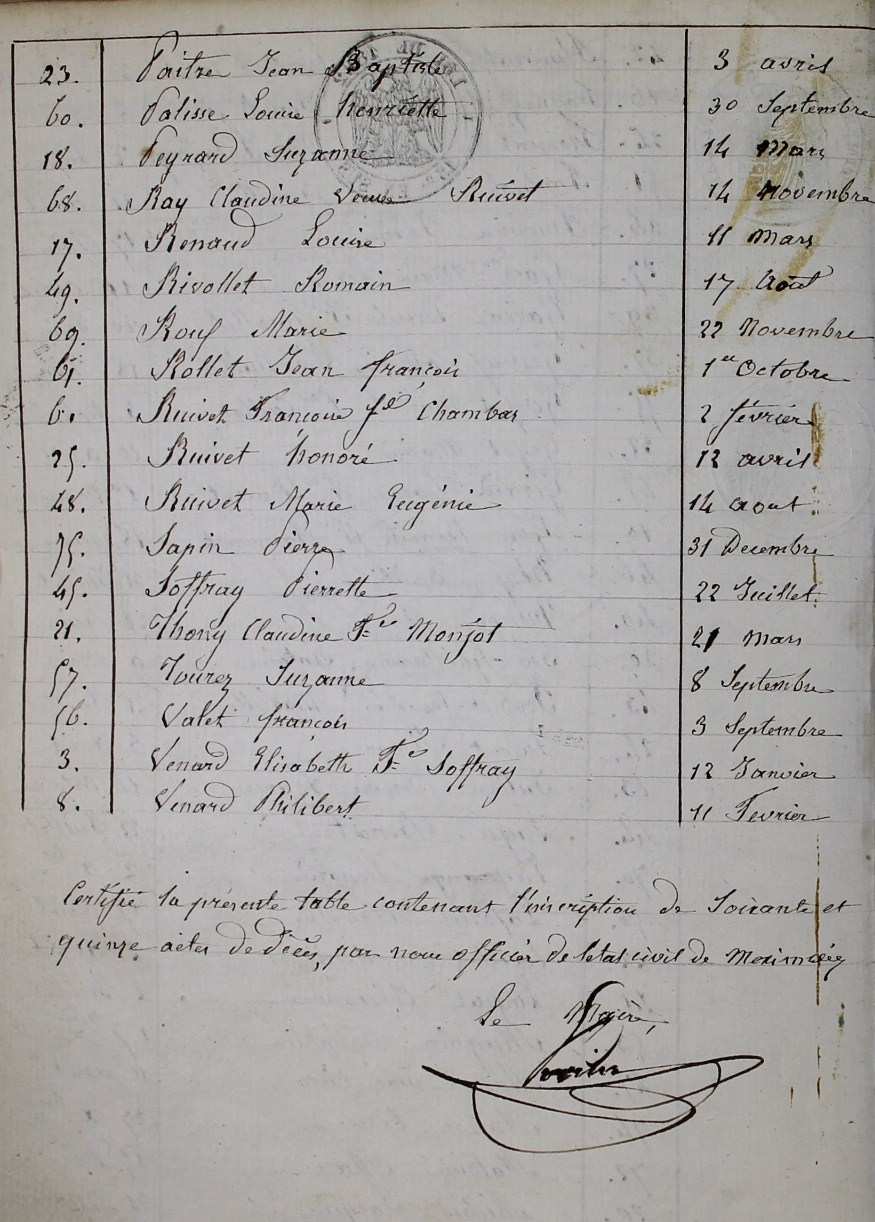 23. Paitre Jean Baptiste 3 avril
60. Palisse Louise henriette 30 Septembre
18. Peyrard Suzanne 14 Mars
68. Ray Claudine Veuve Ruivet 14 Novembre
17. Renaud Louise 11 Mars
49. Rivollet Romain 17 Août
69. Roux Marie 22 Novembre
61. Rollet Jean françois 1er Octobre
6. Ruivet Françoise fe Chambas 2 février
25. Ruivet honoré 12 avril
48. Ruivet Marie Eugénie 14 aout
75. Sapin Pierre 31 Decembre
45. Soffray Pierrette 22 Juillet
21. Thony Claudine Fe Monjot 21 mars
57. Tourez Suzanne 8 Septembre
56. Valet françois 3 Septembre
3. Venard Elisabeth Fe Soffray 12 Janvier
8. Venard Philibert 11 Fevrier
Certifié la présente table contenant l'inscription de Soixante et
quinze actes de décès, par nous officier de l'etat civil de Meximieux
Le Maire,